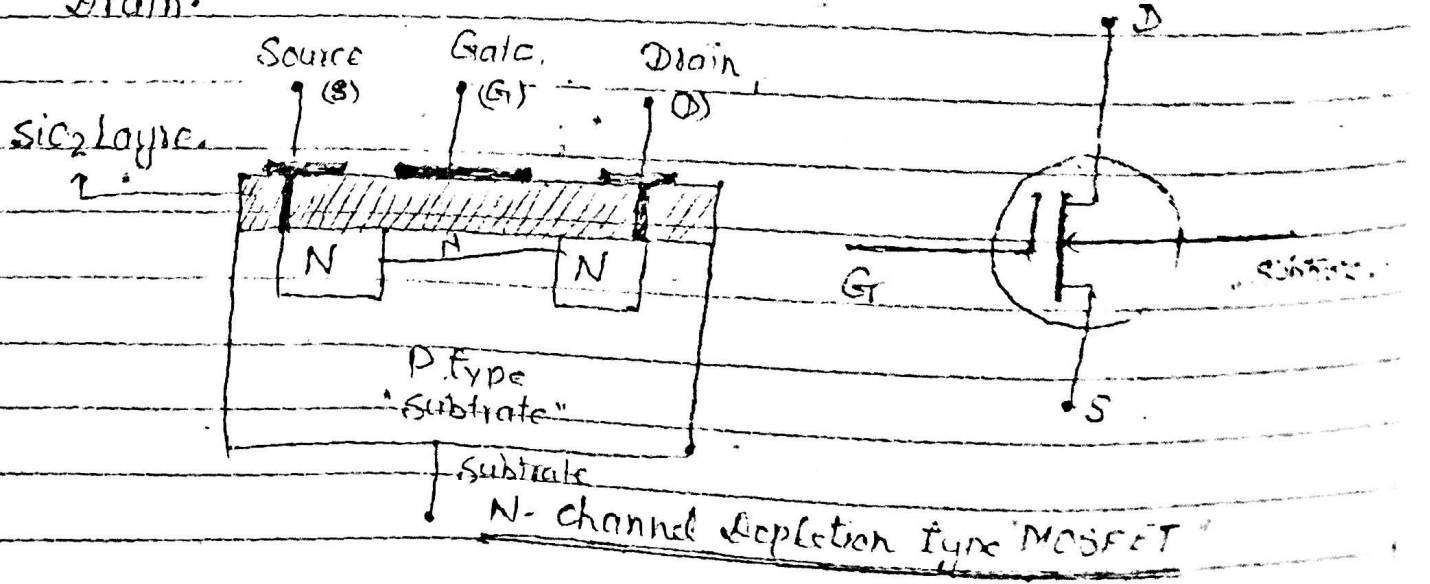 Drain.
Source Gate. Drain
(S) (G) (D)
D
Sio2 Layre.
N N N
G
P type
"Subtrate"
S
Subtrate
N- channel Depletion type MOSFET